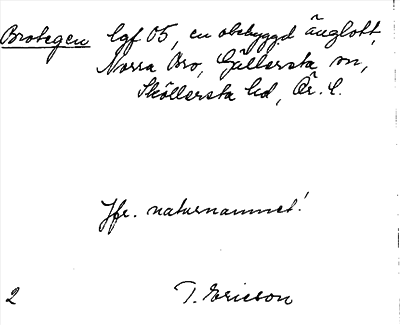 Brotegen lgf 05, en obebyggd änglott,
Norra Bro, Gällersta sn,
Sköllersta hd, Ör. l.
Jfr. naturnamnet!
2 T. Ericson